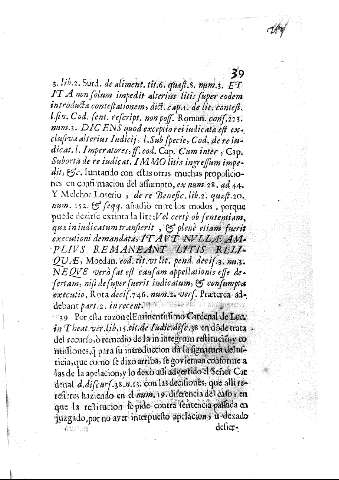 39
3. lib. 2. Surd. de aliment. tit. 6. quæst. 8. num. 3. ET
ITA non solum impedit alterius litis super eodem
introducta contestationem, dict. cap. 1. de lit. contest.
l. fin. Cod. sent. rescript. non poss. Roman. cons. 223.
num. 3. DICENS quod exceptio rei iudicata est ex-
clusiva alterius Iudicij. l. Sub specie, Cod. de re iu-
dicat. l. Imperatores, ff. eod. Cap. Cum inter, Cap.
Suborta de re iudicat. IMMO litis ingressum impe-
dit, &c. Juntando con estas otras muchas proposicio-
nes en confirmacion del assumpto, ex num. 28. ad 44.
Y Melchor Loterio, de re Benefic. lib. 2. quæst. 20.
num. 152. & seqq. añadió en tres los modos, porque
puede decirse extinta la lite: Vel certè ob sententiam,
quæ in iudicatum transierit, & plenè etiam fuerit
executioni demandata; ITA UT NULLÆ AM-
PLIUS REMANEANT LITIS RELI-
QUÆ, Moedan. eod. tit. ut lit. pend. decis. 3. nu. 3.
NEQUE verò sat est causam appellationis esse de-
sertam, nisi desuper fuerit iudicatum, & consumpta
executio, Rota decis. 746. num. 2. vers. Præterea ad-
debant part. 2. in recent.
39 Por esta razon el Eminentissimo Cardenal de Luca
in Theat. ver. lib. 15. tit. de Iudic. disc. 38 en dõde trata
del recurso, ò remedio de la in integrum restitucion, y co
missiones, q̃ para su introduccion da la signatura de Jus-
ticia, que como se dixo arriba, se goviernan conforme a
las de la apelacion, y lo dexò assi advertido el Señor Car
denal d. discurs. 38. n. 15. con las decisiones, que alli re-
fiere: haziendo en el d. num. 19. diferencia del caso, en
que la restitucion se pide contra sentencia passada en
juzgado, por no aver interpuesto apelacion, ù dexado
deser-